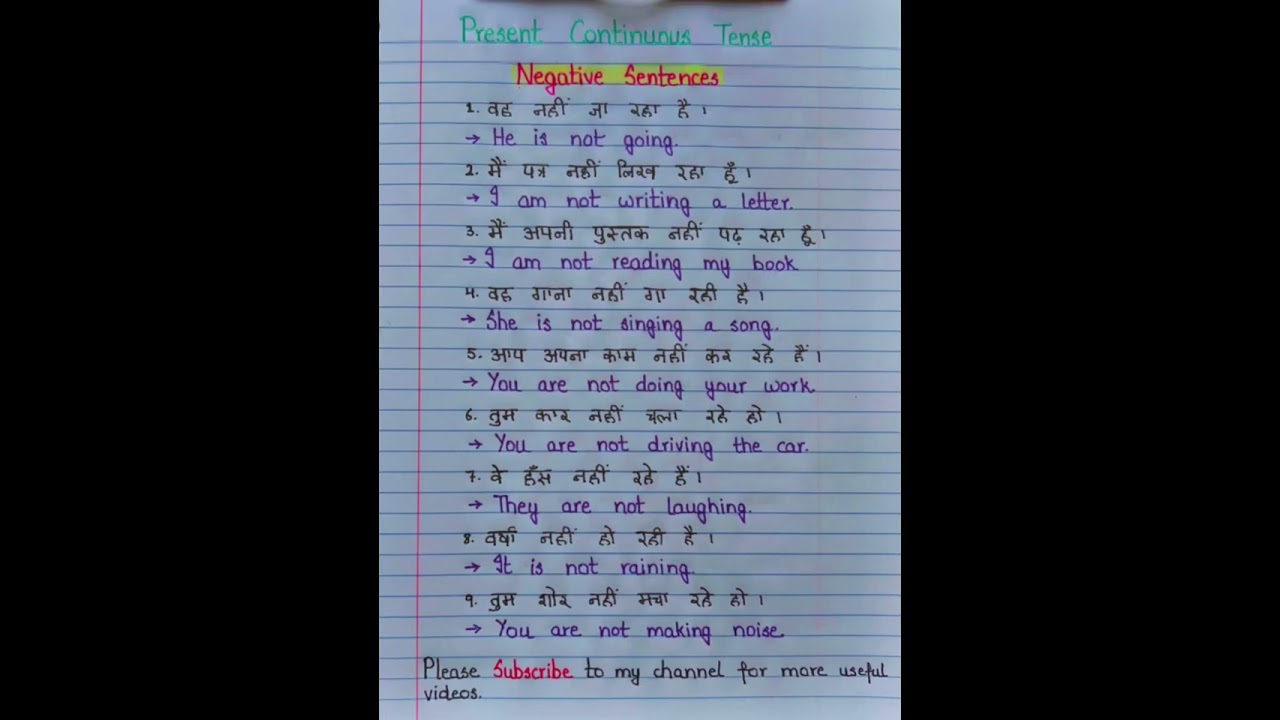 Present Continuous Tense
Negative Sentences
1. वह नहीं जा रहा है।
→ He is not going.
2. मैं पत्र नहीं लिख रहा हूँ।
→ I am not writing a letter.
3. मैं अपनी पुस्तक नहीं पढ़ रहा हूँ।
→ I am not reading my book
4. वह गाना नहीं गा रही है।
→ She is not singing a song.
5. आप अपना काम नहीं कर रहे हैं।
→ You are not doing your work.
6. तुम कार नहीं चला रहे हो।
→ You are not driving the car.
7. वे हँस नहीं रहे हैं।
→ They are not laughing.
8. वर्षा नहीं हो रही है।
→ It is not raining.
9. तुम शोर नहीं मचा रहे हो।
→ You are not making noise.
Please Subscribe to my channel for more useful
videos.